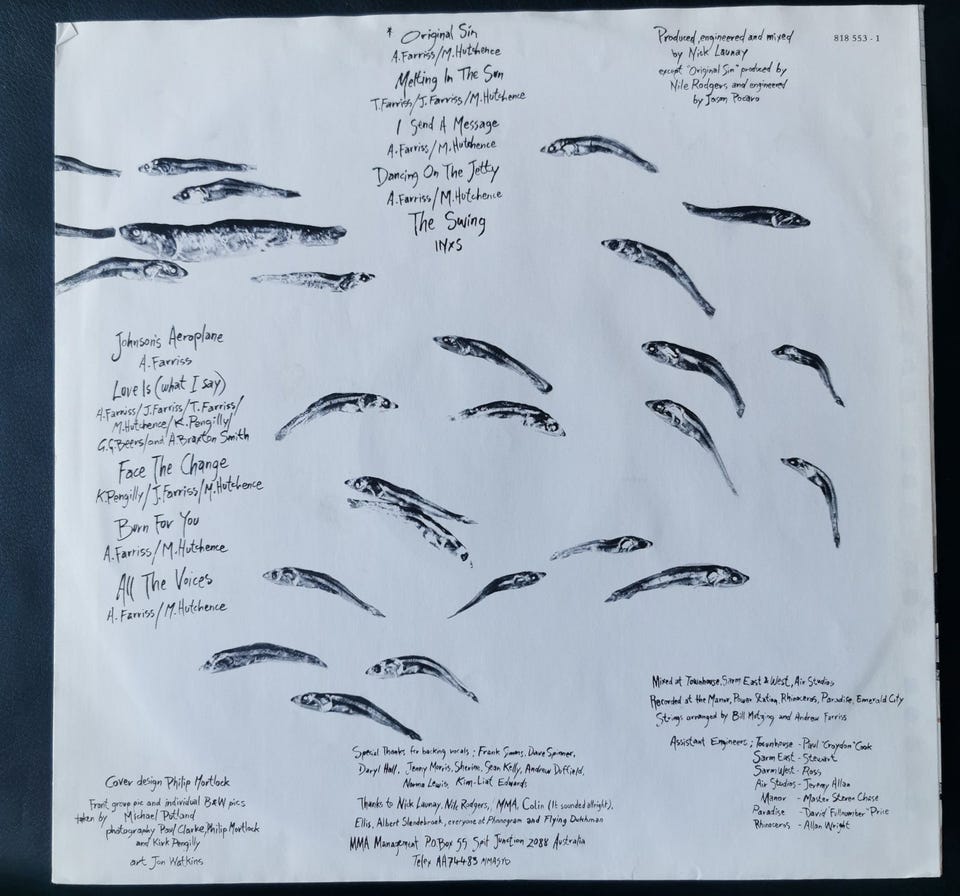 * Original Sin
A.Farriss/M.Hutchence
Melting In The Sun
T.Farriss/J.Farriss/M.Hutchence
I Send A Message
A.Farriss/M.Hutchence
Dancing On The Jetty
A.Farriss/M.Hutchence
The Swing
INXS
Produced, engineered and mixed
by Nick Launay
except "Original Sin" produced by
Nile Rodgers and engineered
by Jason
818 553 - 1
Johnson's Aeroplane
A.Farriss
Love Is (what I say)
A.Farriss/J.Farriss/T.Farriss/
M.Hutchence/K.Pengilly/
G.G.Beers/and A.Braxton Smith
Face The Change
K.Pengilly/J.Farriss/M.Hutchence
Burn For You
A.Farriss/M.Hutchence
All The Voices
A.Farriss/M.Hutchence
Mixed at Townhouse, Sarm East & West, Air Studios
Recorded at the Manor, Power Station, Rhinoceros, Paradise, Emerald City
Strings arranged by Bill and Andrew Farriss
Assistant Engineers; Townhouse - Paul "Croydon" Cook
Sarm East - Stewart
Sarm West - Ross
Air Studios - Jeremy Allan
Manor - Master Steven Chase
Paradise - David Price
Rhinoceros - Allan Wright
Special Thanks for backing vocals; Frank Simms, Dave Spinner,
Daryl Hall, Jenny Morris, Sherine, Sean Kelly, Andrew Duffield,
Norma Lewis, Kim-Liat Edwards
Thanks to Nick Launay, Nile Rodgers, MMA, Colin (It sounded alright),
Ellis, Albert Slendebroek, everyone at Phonogram and Flying Dutchman
MMA Management P.O.Box 55 Spit Junction 2088 Australia
Telex AA74483
Cover design Philip Mortlock
Front group pic and individual B&W pics
taken by Michael Putland
photography Paul Clarke, Philip Mortlock
and Kirk Pengilly
art Jon Watkins